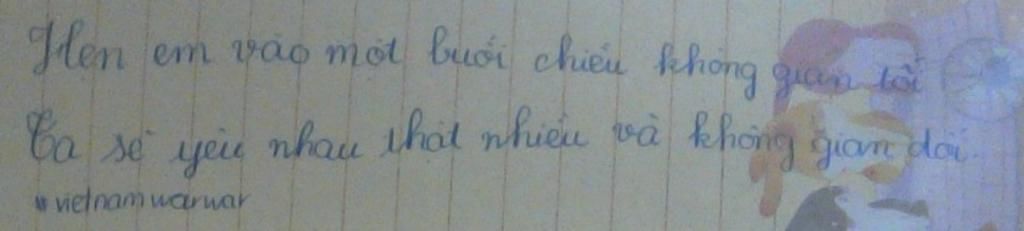 Hẹn em vào một buổi chiều không gian tối
Ta sẽ yêu nhau thật nhiều và không gian dối.
#vietnamwarwar